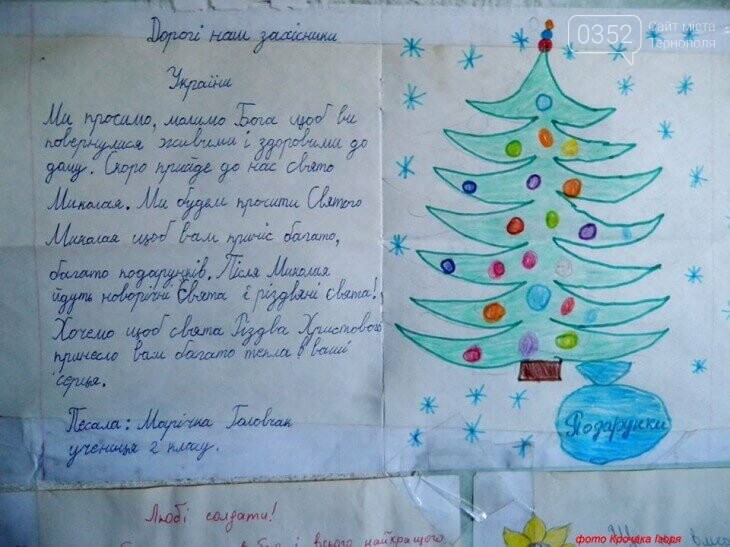 Дорогі наш захісники
України
Ми просимо, молимо Бога щоб ви
повернулися живими і здоровими до
дому. Скоро прийде до нас свято
Миколая. Ми будем просити Святого
Миколая щоб вам приніс багато,
багато подарунків. Після Миколая
йдуть новорічні Свята і різдвяні свята!
Хочемо щоб свята Різдва Христового
принесло вам багато тепла в ваші
серця.
Песала: Марічка Головчак
учениця 2 класу.
Подарунки
0352
Сайт міста
Тернополя
Любі солдати!
всього найкращого
фото Крочака Ігоря